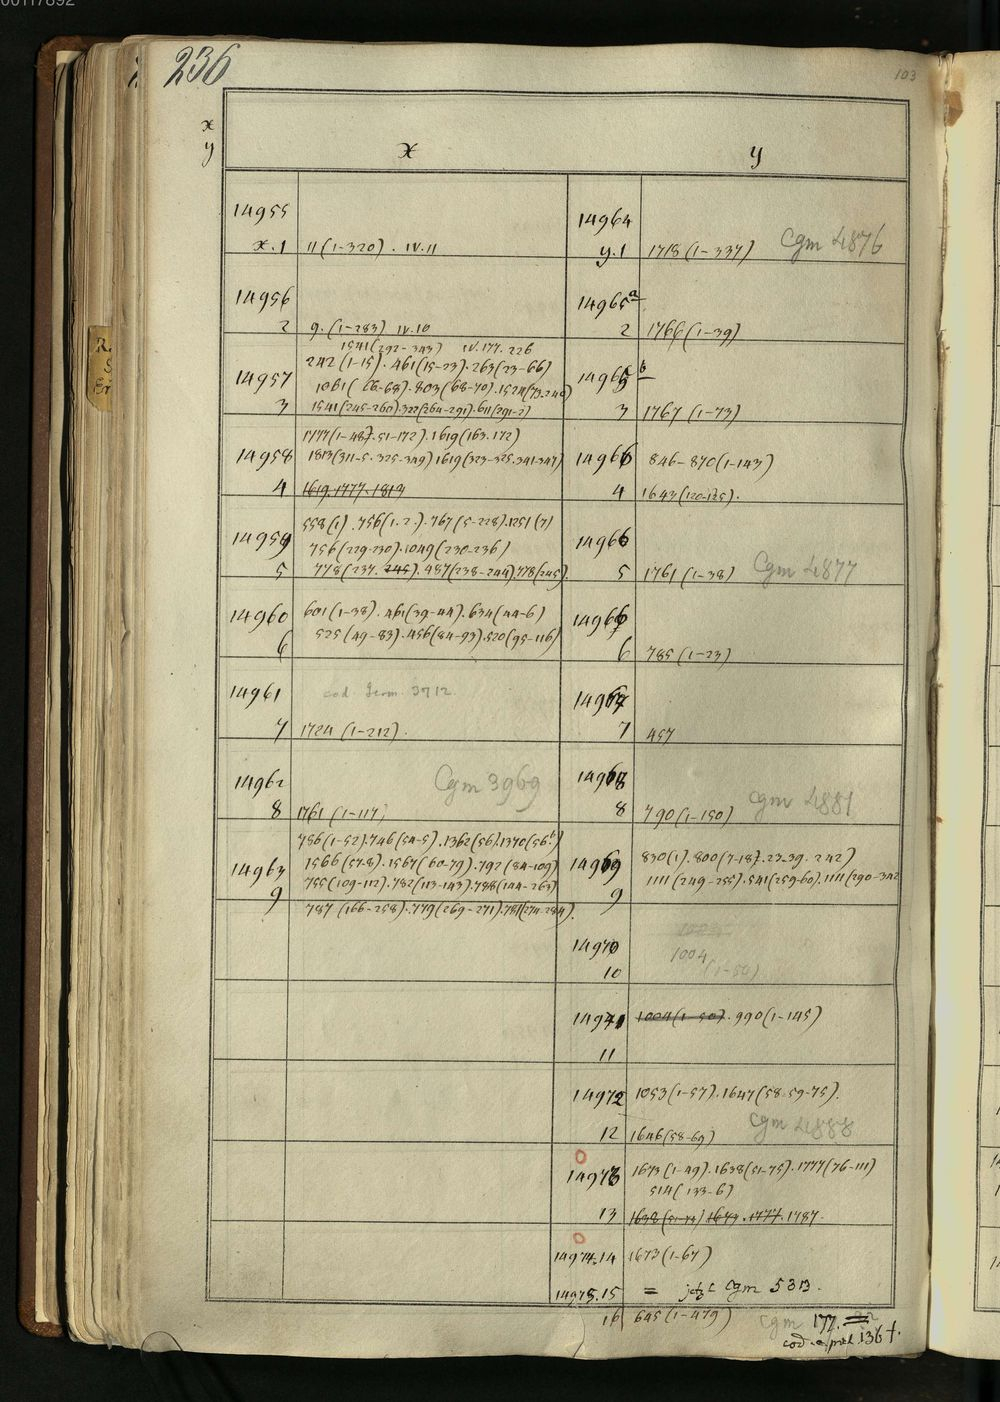 00117892
236
103
x
y
x
y
14955
x.1 11 (1-320) . IV.11
14956
2 9. (1-283) IV.10
1541(292-343) IV.177.226
242 (1-15) . 461(15-23) . 263(23-66)
14957 1061 ( 66-68) . 803(68-70) .
3 1541(245-260).322(264-291).611(291-2)
1777(1-48 . 51-172) . 1619(163.172)
14958 1813(311-5.325-349) 1619(323-325.341-347)
4 1619.1777.1819
558(1) . 756(1.2.) . 767(5-228).1251(7)
14959 756(229-230).1049(230-236)
5 778(237. 245). 487(238-244).778(245).
14960 601 (1-38) . 461(39-44) . 634(44-6)
6 525(49-83).456(84-93).520(95-116)
14961 cod. Germ. 3712.
7 1724 (1-212) .
14962 Cgm 3969
8 1761 (1-117)
786(1-52).746(54-5).1362(56).1370(56b)
14963 1566(57-8).1567(60-79).792(84-109)
755(109-112).782(113-143).788(144-263)
9
787 (166-258).779(269-271).781(274-284).
14964
y.1 1718 (1-337) Cgm 4876
14965a
2 1766 (1-39)
14965b
3 1767 (1-73)
14966 846-870(1-143)
4 1643(120-125).
14966
5 1761 (1-38) Cgm 4877
14966
6 785 (1-23)
14967
7 457
14968
8 790(1-150) Cgm 4881
830(1).800(7-187.23-39.242)
14969 1111(249-255).541(259-60).1111(290-342
9
14970 1004
10 (1-50)
14971 1004(1-50) . 990(1-145)
11
14972 1053(1-57).1647(58-59-75).
12 1646(58-69) Cgm 4888
14973 1673(1-49).1638(51-75).1777(76-111)
514(133-6)
13 1638 1673.1777.1787.
14974.14 1673(1-67)
14975.15 = jetzt Cgm 5313.
16 645(1-479) Cgm 177.
cod. c. pict 136 f.